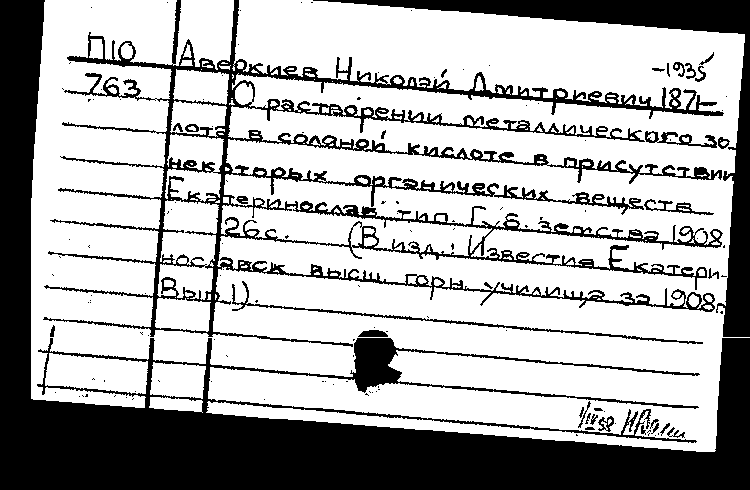 П10 Аверкиев, Николай Дмитриевич, 1871-
-1935
763 О растворении металлического зо
лота в соланой кислоте в присутствии
некоторых органических веществ
Екатеринослав, тип. Губ. земства, 1908.
26с. (В изд.: Известия Екатери-
нославск высш горн училища за 1908г.
Вып 1).
1/IV 58